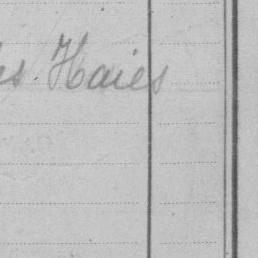 es Haies